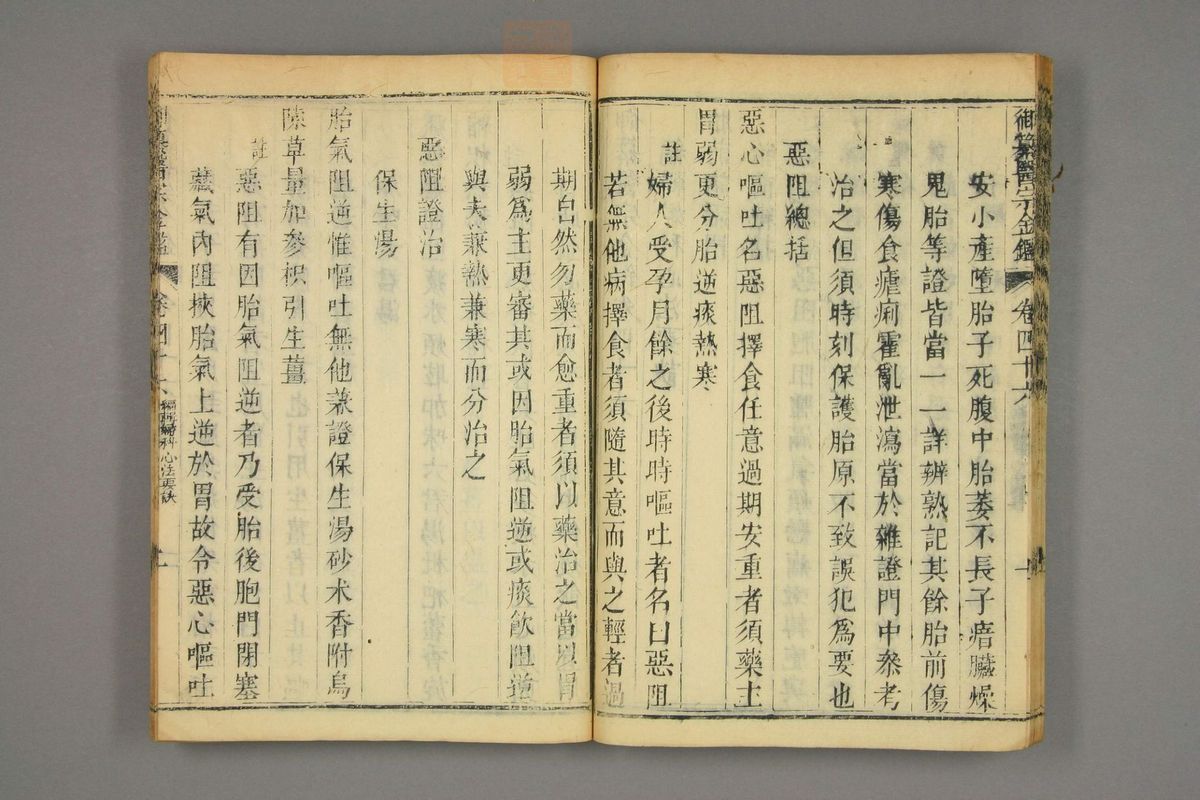 御纂醫宗金鑑 卷四十六
安小產墮胎子死腹中胎萎不長子瘖臟燥
鬼胎等證皆當一一詳辨熟記其餘胎前傷
寒傷食瘧痢霍亂泄瀉當於雜證門中叅考
治之但須時刻保護胎原不致誤犯爲要也
惡阻總括
惡心嘔吐名惡阻擇食任意過期安重者須藥主
胃弱更分胎逆痰熱寒
註
婦人受孕月餘之後時時嘔吐者名曰惡阻
若無他病擇食者須隨其意而與之輕者過
期自然勿藥而愈重者須以藥治之當以胃
弱爲主更審其或因胎氣阻逆或痰飮阻逆
與夫兼熱兼寒而分治之
惡阻證治
保生湯
胎氣阻逆惟嘔吐無他兼證保生湯砂术香附烏
陳草量加參枳引生薑
註
惡阻有因胎氣阻逆者乃受胎後胞門閉塞
藏氣內阻挾胎氣上逆於胃故令惡心嘔吐
卷四十六 編輯婦科心法要訣